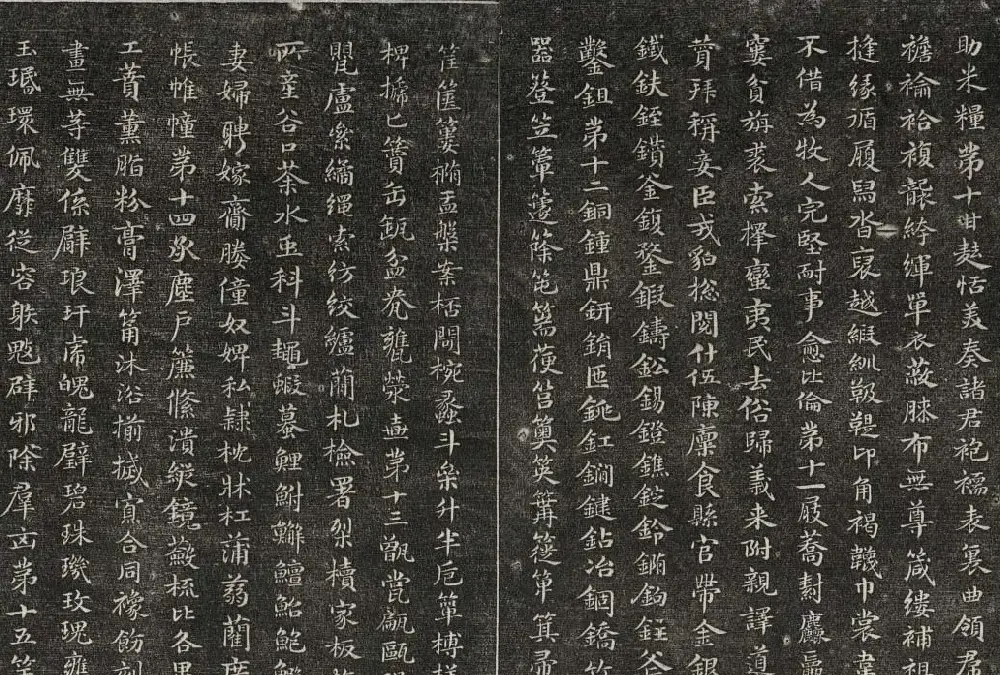 助米糧第十甘麩恬美奏諸君袍襦表裏曲領帬
襜褕袷複襲絝緷單衣蔽膝布無尊箴縷補袒
摓緣循履舄沓裒越緞紃靸鞮卬角褐韤巾裳韋
不借為牧人完堅耐事愈比倫第十一屐蕎麤羸
窶貧旃裘索擇蠻夷民去俗歸義来附親譯道
贊拜稱妾臣戎貊揔閱什伍陳廩食縣官帶金銀
鐵鈇銍鑽釜鍑鍪鍜鑄鈆錫鐙鐎鋌鈴鉤斧
鑿鉏第十二銅鍾鼎鈃銷匜銚釭鐧鍵鉆冶錮鐈竹
器簦笠簟籧篨篅箯筥篝箄箕帚
筐篋簍楕盂槃案桮閜椀蠡斗參升半卮箪榑
椑榹匕籫缶瓵盆甕滎壺第十三甑甞甂甌
甖盧絫繘繩索紡絞纑簡札檢署槧牘家板
所産谷口茶水虫科斗蝦蟇鯉鮒鱣鮐鮑
妻婦聘嫁齎媵僮奴婢私隸枕牀杠蒲蒻藺席
帳帷幢第十四承塵戶簾絛潰縱鏡籢梳比各異
工蕡薰脂粉膏澤筩沐浴揃搣寡合同豫飭刻
畫無等雙係臂琅玕虎魄龍璧碧珠璣玫瑰甕
玉環佩靡從容射鬾辟邪除羣凶第十五竽